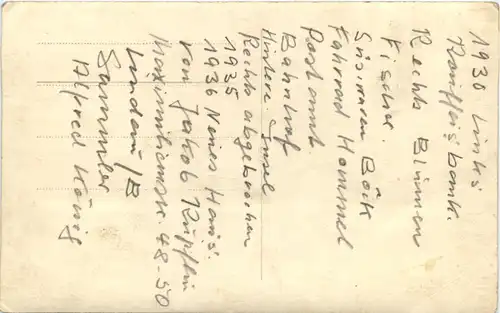 1930 Links
Raiffeisbank.
Rechts Blumen
Fischer.
Süsswaren Böck
Fahrrad Hommel
Postamt.
Bahnhof
Hintere Insel
Rechts abgebrochen
1935
1936 Neues Haus.
von Jakob Rupflin
Maximilianstr. 48-50
Lindau/B
Sammler
Alfred König